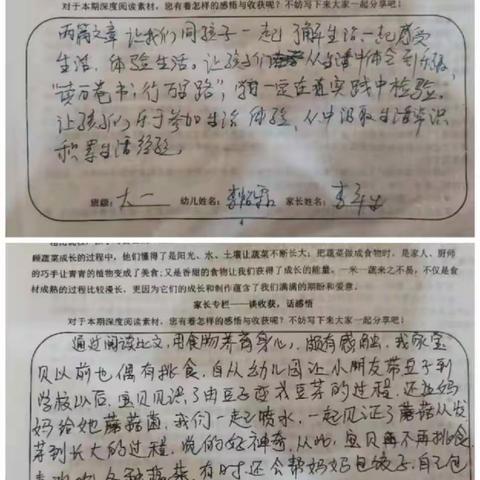 对于本期深度阅读素材，您有着怎样的感悟与收获呢？不妨写下来大家一起分享吧！
两篇文章让我们同孩子一起了解生活，一起感受
生活，体验生活。让孩子们从生活中体会到乐趣，
"读万卷书，行万里路"，一定在实践中检验，
让孩子们乐于参加生活体验，从中汲取生活常识
积累生活经验。
班级：大一 幼儿姓名： 家长姓名：
4
顾蔬菜成长的过程中，他们懂得了是阳光、水、土壤让蔬菜不断长大；把蔬菜做成食物时，是家人、厨师
的巧手让青青的植物变成了美食；又是香甜的食物让我们获得了成长的能量。一米一蔬来之不易，不仅是食
材成熟的过程比较漫长，更因为它们的成长和制作蕴含了我们满满的期盼和爱意。
家长专栏——谈收获，话感悟
对于本期深度阅读素材，您有着怎样的感悟与收获呢？不妨写下来大家一起分享吧！
通过阅读此文，用食物养育身心，颇有感触，我家宝
贝以前也偶有挑食，自从幼儿园让小朋友带豆子到
学校以后，宝贝见证了由豆子变成豆芽的过程，还让妈
妈给她蘑菇菌，我们一起喷水，一起见证了蘑菇从发
芽到长大的过程，说的好神奇，从此，宝贝再不再挑食，
各种蔬菜，有时还会帮妈妈包饺子，自己包